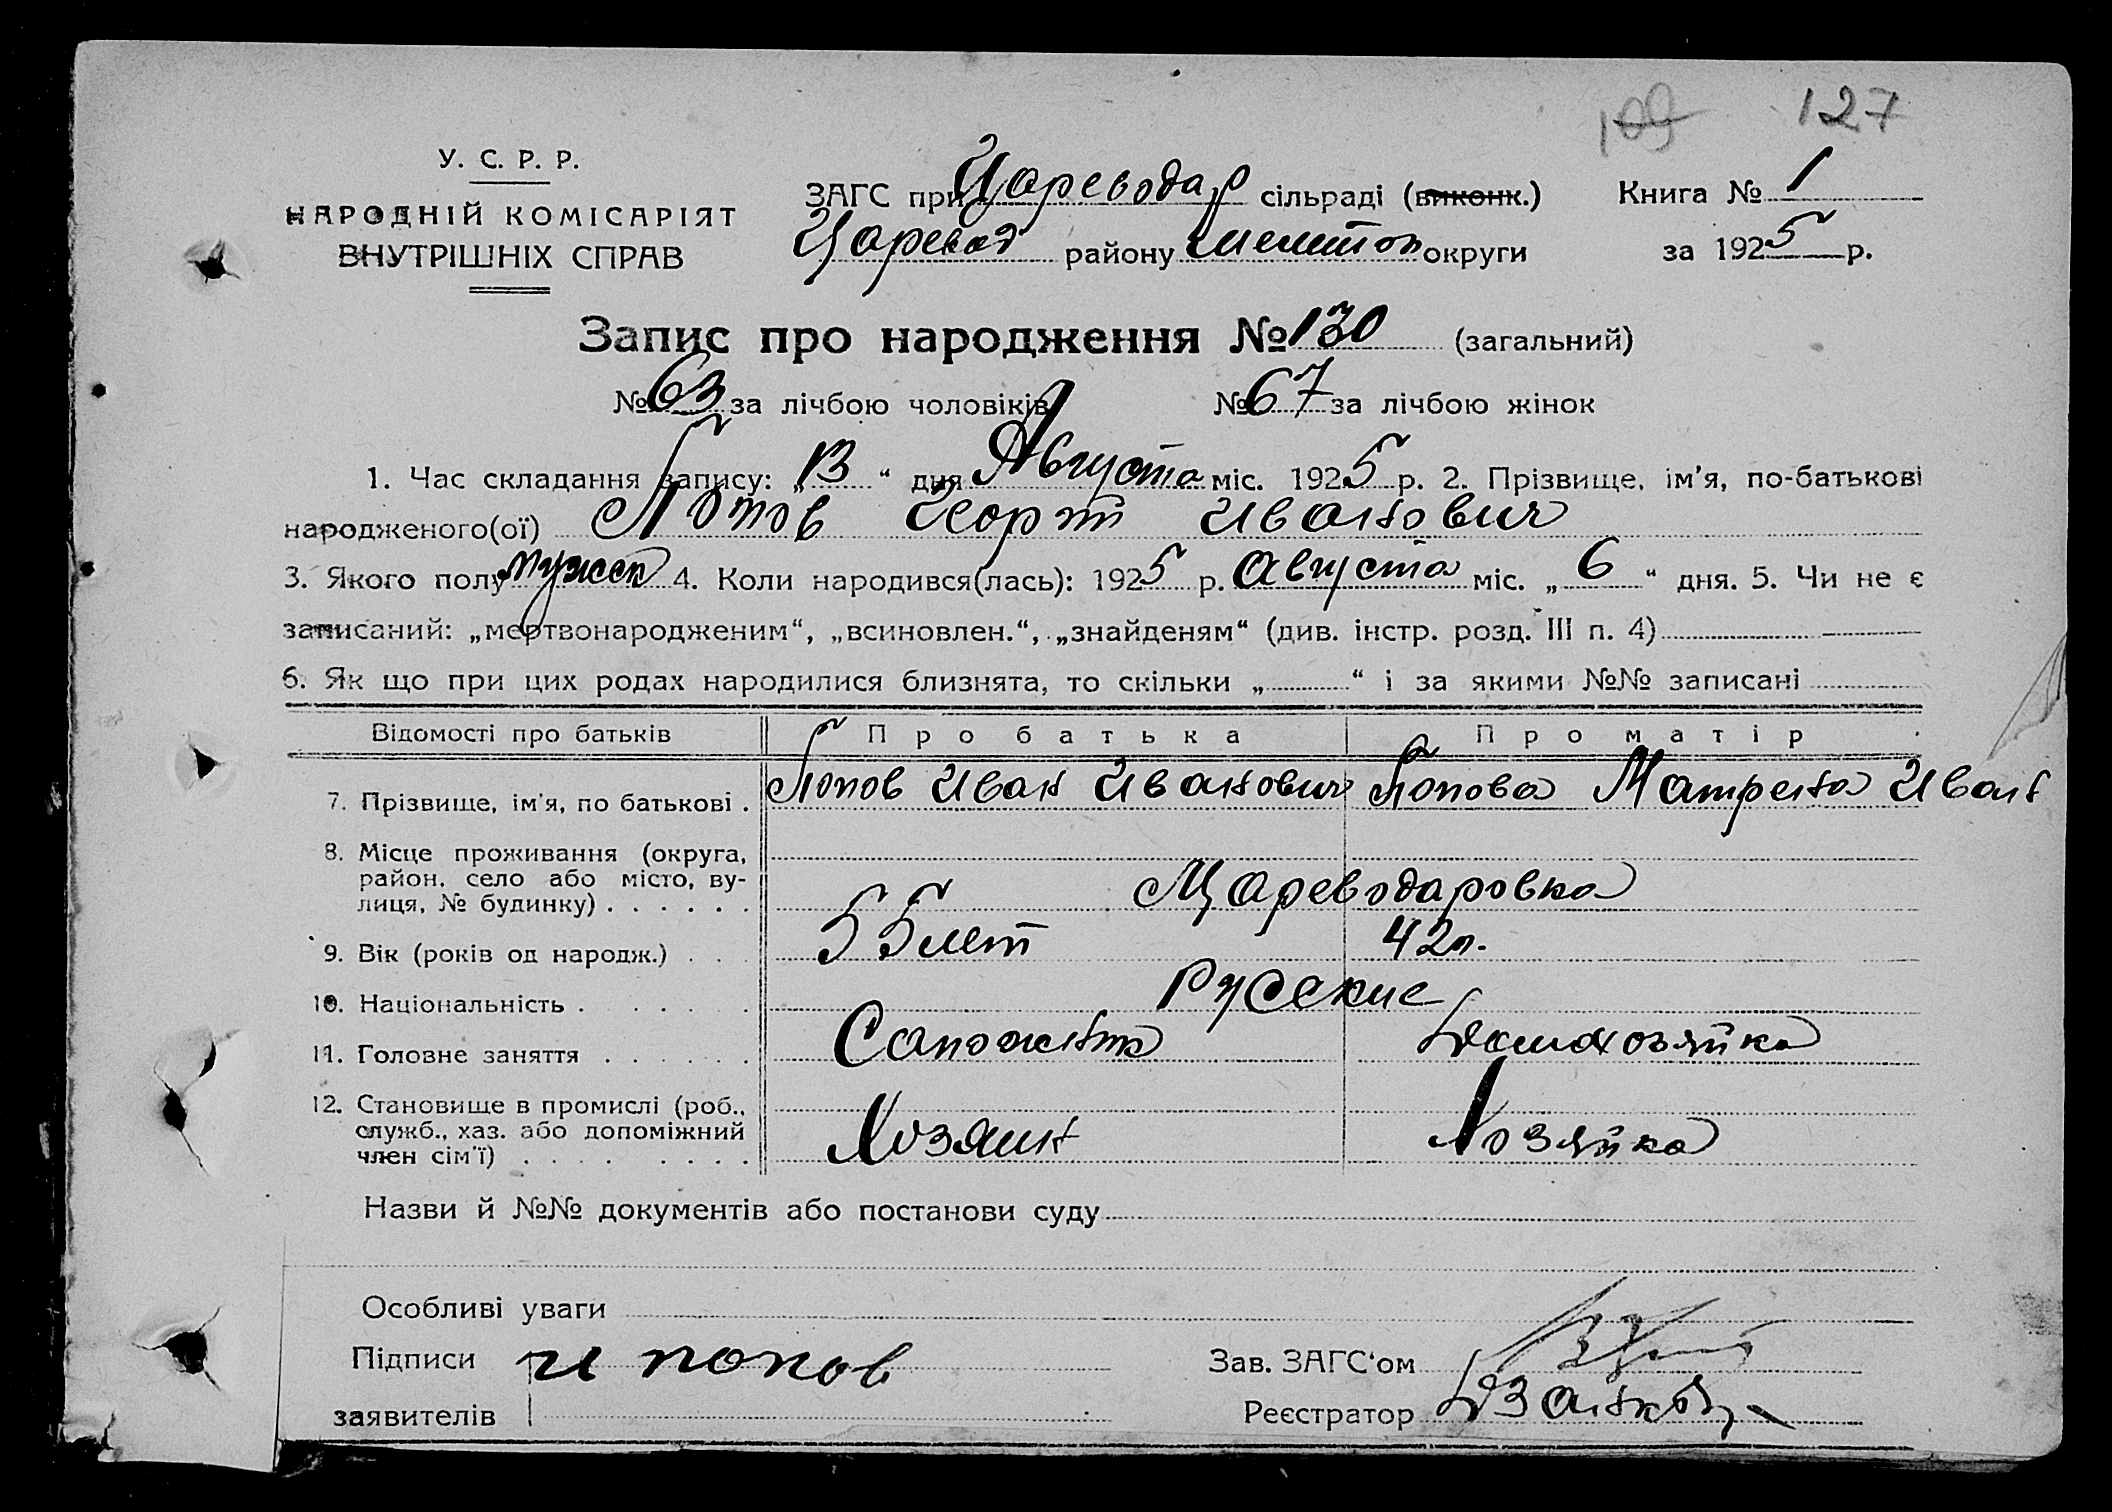 109 127
У. С. Р. Р.
НАРОДНІЙ КОМІСАРІЯТ
ВНУТРІШНІХ СПРАВ
ЗАГС при Цареводар сільраді (виконк.) Книга № 1
Царевод району Мелитоп округи за 1925 р.
Запис про народження № 130 (загальний)
№ 63 за лічбою чоловіків № 67 за лічбою жінок
1. Час складання запису: „13“ дня Августа міс. 1925 р. 2. Прізвище, ім'я, по-батькові
народженого(ої) Попов Георгий Иванович
3. Якого полу мужск 4. Коли народився(лась): 1925 р. Августа міс. „6“ дня. 5. Чи не є
записаний: „мертвонародженим“, „всиновлен.“, „знайденям“ (див. інстр. розд. III п. 4)
6. Як що при цих родах народилися близнята, то скільки „ “ і за якими №№ записані
Відомості про батьків Про батька Про матір
7. Прізвище, ім'я, по батькові . Попов Иван Иванович Попова Матрена Иван
8. Місце проживання (округа,
район, село або місто, ву-
лиця, № будинку) . . . . . . Цареводаровка
9. Вік (років од народж.) . . . 55 лет 42 л.
10. Національність . . . . . Русские
11. Головне заняття . . . . . . Сапожник Домахозяйка
12. Становище в промислі (роб.,
служб., хаз. або допоміжний
член сім'ї) . . . . . . . . Хозяин Хозяйка
Назви й №№ документів або постанови суду
Особливі уваги
Підписи И попов Зав. ЗАГС'ом
заявителів Реєстратор